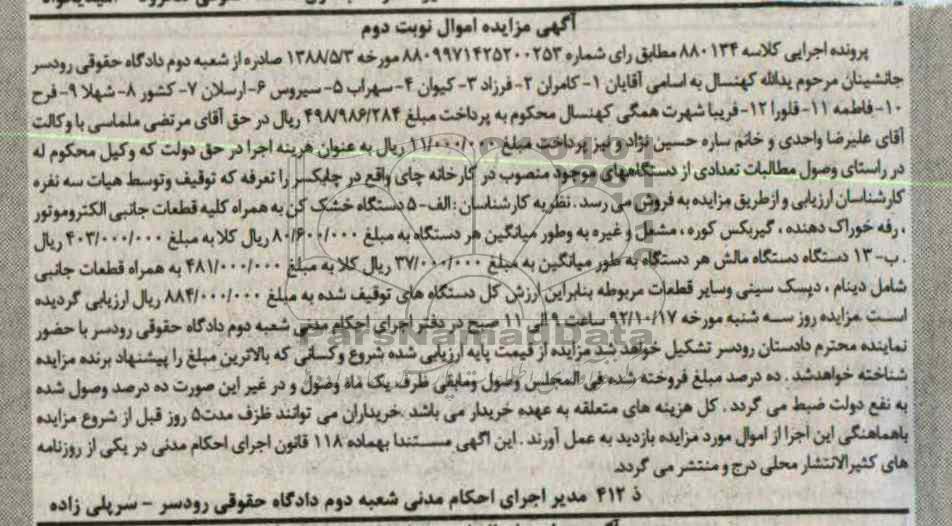 آگهی مزایده اموال نوبت دوم
پرونده اجرایی کلاسه ۸۸۰۱۳۴ مطابق رای شماره ۸۸۰۹۹۷۱۴۲۵۲۰۰۲۵۳ مورخه ۱۳۸۸/۵/۳ صادره از شعبه دوم دادگاه حقوقی رودسر
جانشینان مرحوم یدالله کهنسال به اسامی آقایان ۱- کامران ۲- فرزاد ۳- کیوان ۴- سهراب ۵- سیروس ۶- ارسلان ۷- کشور ۸- شهلا ۹- فرح
۱۰- فاطمه ۱۱- فلورا ۱۲- فریبا شهرت همگی کهنسال محکوم به پرداخت مبلغ ۴۹۸/۹۸۶/۲۸۴ ریال در حق آقای مرتضی ملماسی با وکالت
آقای علیرضا واحدی و خانم ساره حسین نژاد و نیز پرداخت مبلغ ۱۱/۰۰۰/۰۰۰ ریال به عنوان هزینه اجرا در حق دولت که وکیل محکوم له
در راستای وصول مطالبات تعدادی از دستگاههای موجود منصوب در کارخانه چای واقع در چابکسر را تعرفه که توقیف وتوسط هیات سه نفره
کارشناسان ارزیابی و ازطریق مزایده به فروش می رسد . نظریه کارشناسان : الف- ۵ دستگاه خشک کن به همراه کلیه قطعات جانبی الکتروموتور
، رفه خوراک دهنده ، گیربکس کوره ، مشعل و غیره به وطور میانگین هر دستگاه به مبلغ ۸۰/۶۰۰/۰۰۰ ریال کلا به مبلغ ۴۰۳/۰۰۰/۰۰۰ ریال
. ب- ۱۳ دستگاه دستگاه مالش هر دستگاه به طور میانگین به مبلغ ۳۷/۰۰۰/۰۰۰ ریال کلا به مبلغ ۴۸۱/۰۰۰/۰۰۰ به همراه قطعات جانبی
شامل دینام ، دیسک سینی وسایر قطعات مربوطه بنابراین ارزش کل دستگاه های توقیف شده به مبلغ ۸۸۴/۰۰۰/۰۰۰ ریال ارزیابی گردیده
است .مزایده روز سه شنبه مورخه ۹۲/۱۰/۱۷ ساعت ۹ الی ۱۱ صبح در دفتر اجرای احکام مدنی شعبه دوم دادگاه حقوقی رودسر با حضور
نماینده محترم دادستان رودسر تشکیل خواهد شد مزایده از قیمت پایه ارزیابی شده شروع و کسانی که بالاترین مبلغ را پیشنهاد برنده مزایده
شناخته خواهدشد . ده درصد مبلغ فروخته شده فی المجلس وصول ومابقی ظرف یک ماه وصول و در غیر این صورت ده درصد وصول شده
به نفع دولت ضبط می گردد . کل هزینه های متعلقه به عهده خریدار می باشد .خریداران می توانند ظزف مدت۵ روز قبل از شروع مزایده
باهماهنگی این اجرا از اموال مورد مزایده بازدید به عمل آورند . این اگهی مستندا بهماده ۱۱۸ قانون اجرای احکام مدنی در یکی از روزنامه
های کثیرالانتشار محلی درج و منتشر می گردد.
ذ ۴۱۲ مدیر اجرای احکام مدنی شعبه دوم دادگاه حقوقی رودسر - سرپلی زاده
ParsNamadData